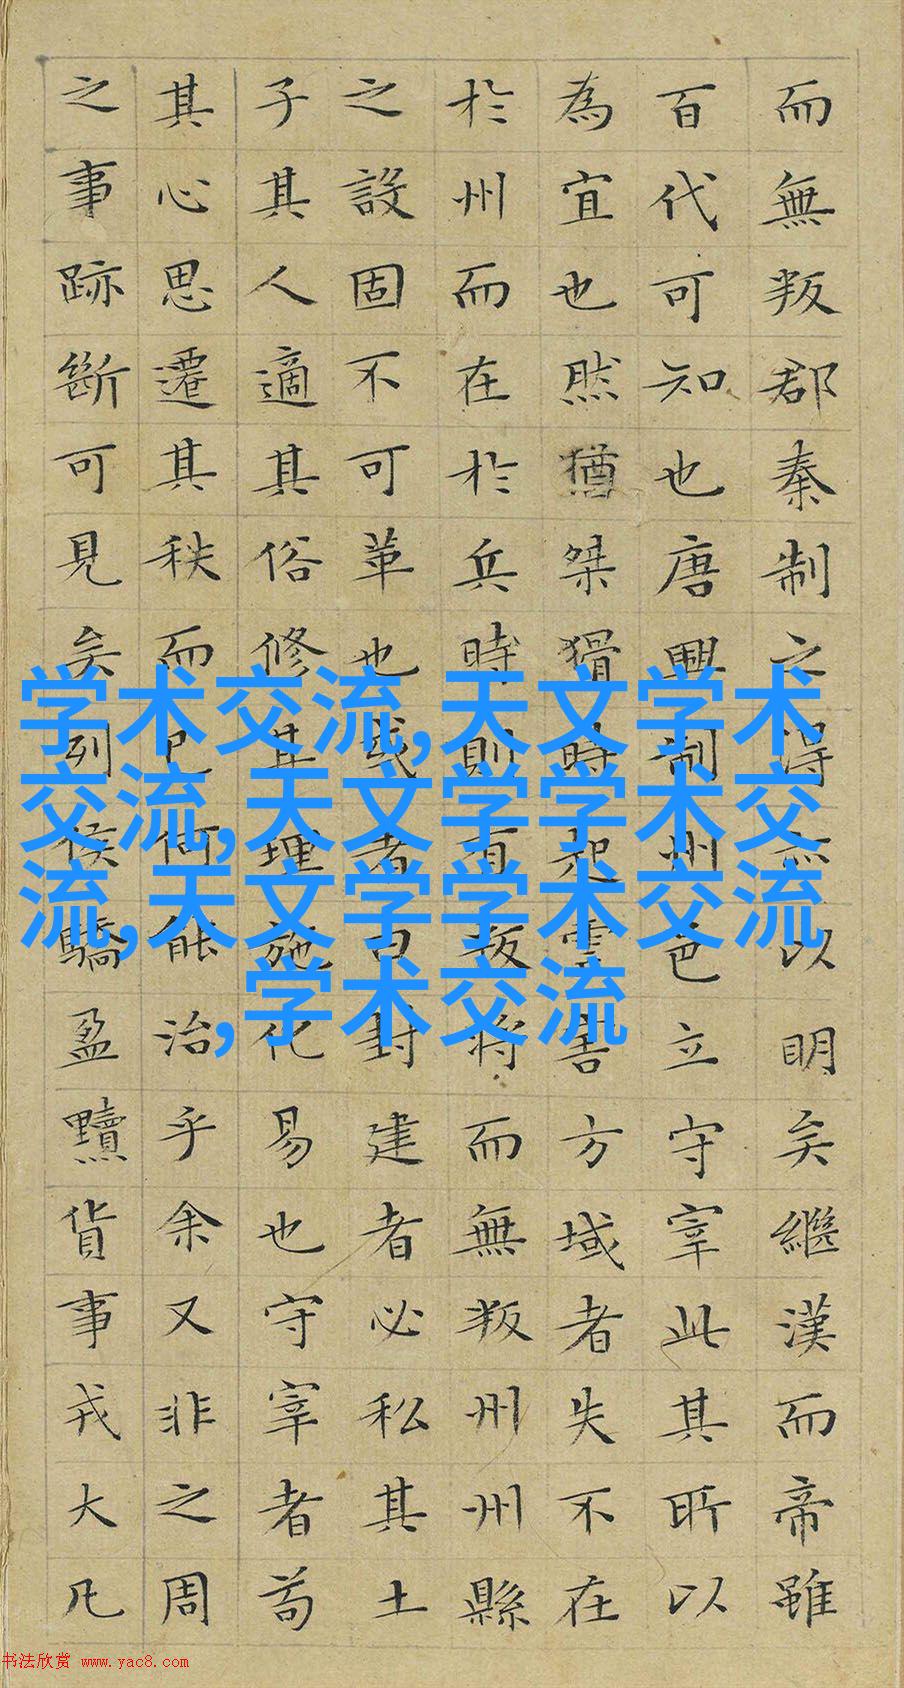 而無叛郡秦制之得亦以明矣繼漢而帝雖
百代可知也唐興制州邑立守宰此其所以
為宜也然猶桀猾時起虐害方域者失不在
於州而在於兵時則有叛將而無叛州州縣
之設固不可革也或者曰封建者必私其土
子其人適其俗修其理施化易也守宰者苟
其心思遷其秩而已何能治乎余又非之周
之事跡斷可見矣列侯驕盈黷貨事戎大凡
学术交流,天文学术
交流,天文学学术交
流,天文学学术交流
,学术交流
书法欣赏 www.yac8.com